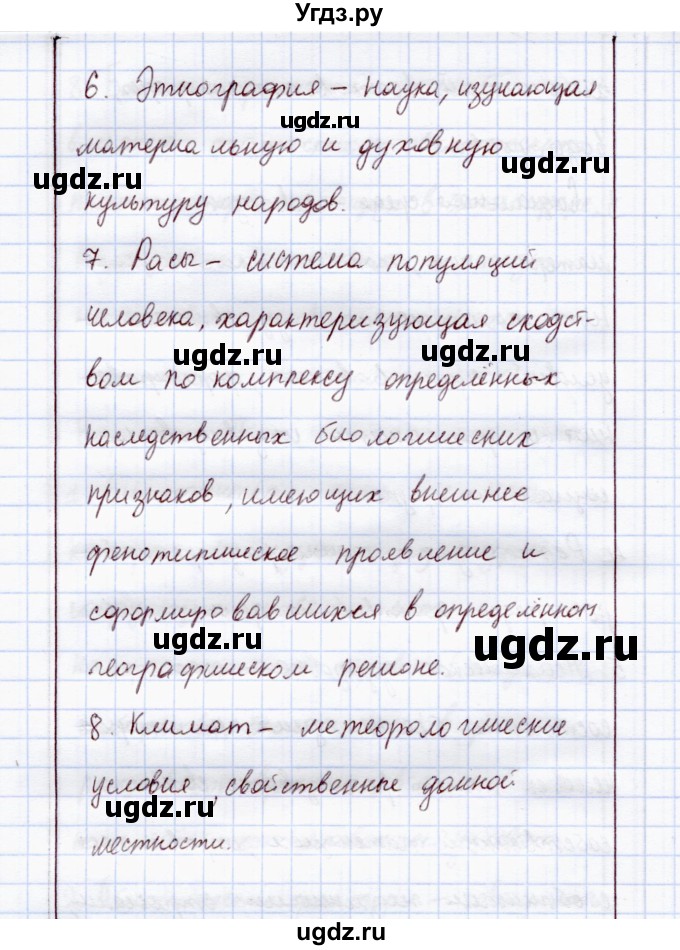 Угдз.ру
6. Этнография – наука, изучающая
ugdz.ru
материальную и духовную
ugdz.ru
культуру народов.
7. Расы – система популяций
человека, характеризующая сходст-
ugdz.ru ugdz.ru
вом по комплексу определённых
наследственных биологических
признаков, имеющих внешнее
фенотипическое проявление и
сформировавшихся в определённом
ugdz.ru ugdz.ru
географическом регионе.
8 Климат – метеорологические
условия, свойственные данной
ugdz.ru
местности.
ugdz.ru